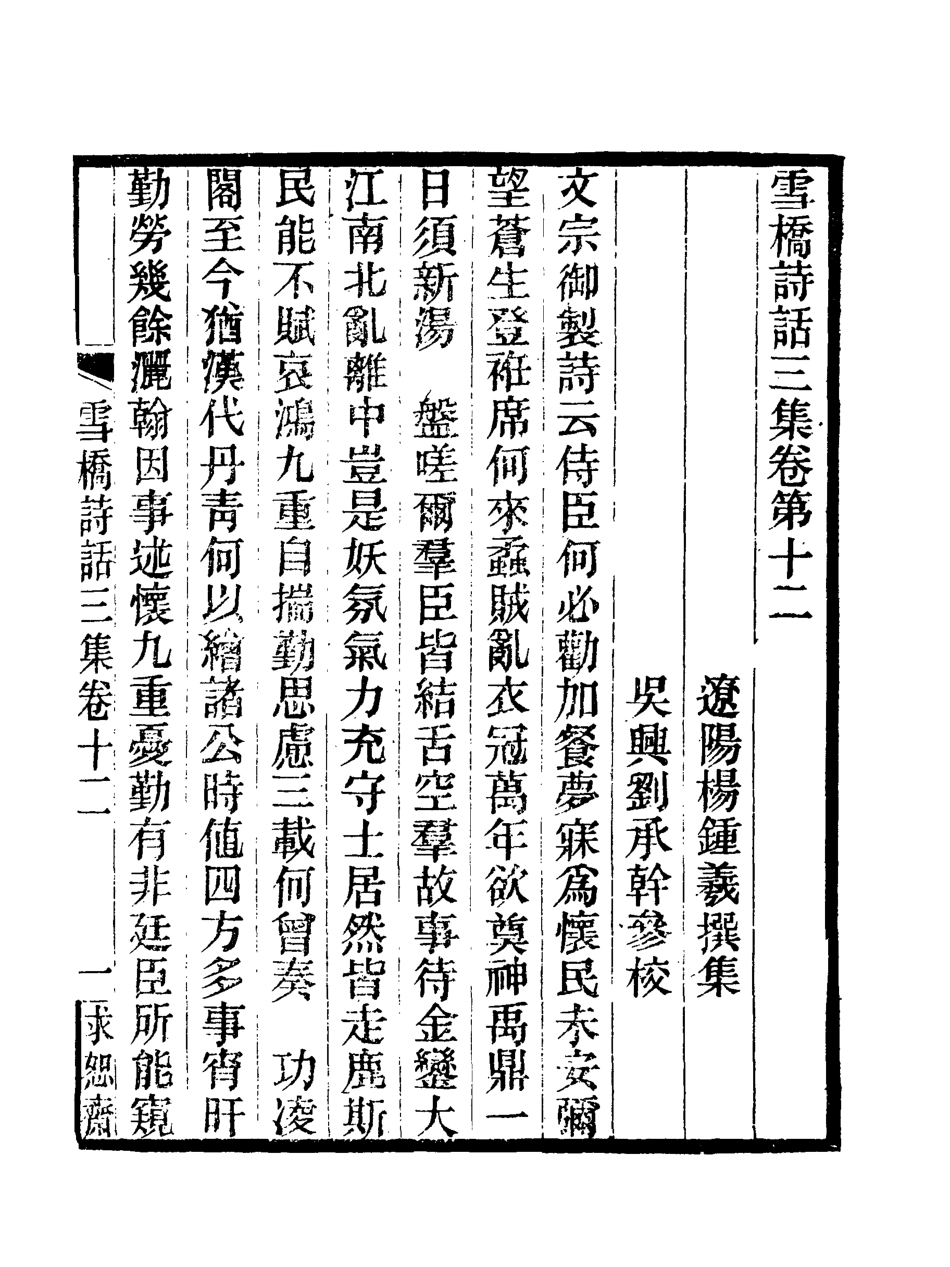 雪橋詩話三集卷第十二
遼陽楊鍾羲撰集
吳興劉承幹參校
文宗御製詩云侍臣何必勸加餐夢寐爲懷民未安彌
望蒼生登袵席何來蟊賊亂衣冠萬年欲奠神禹鼎一
日須新湯　盤嗟爾羣臣皆結舌空羣故事待金鑾大
江南北亂離中豈是妖氛氣力充守土居然皆走鹿斯
民能不賦哀鴻九重自揣勤思慮三載何曾奏　功凌
閣至今猶漢代丹靑何以繪諸公時値四方多事宵旰
勤勞幾餘灑翰因事述懷九重憂勤有非廷臣所能窺
雪橋詩話三集卷十二　一　求恕齋